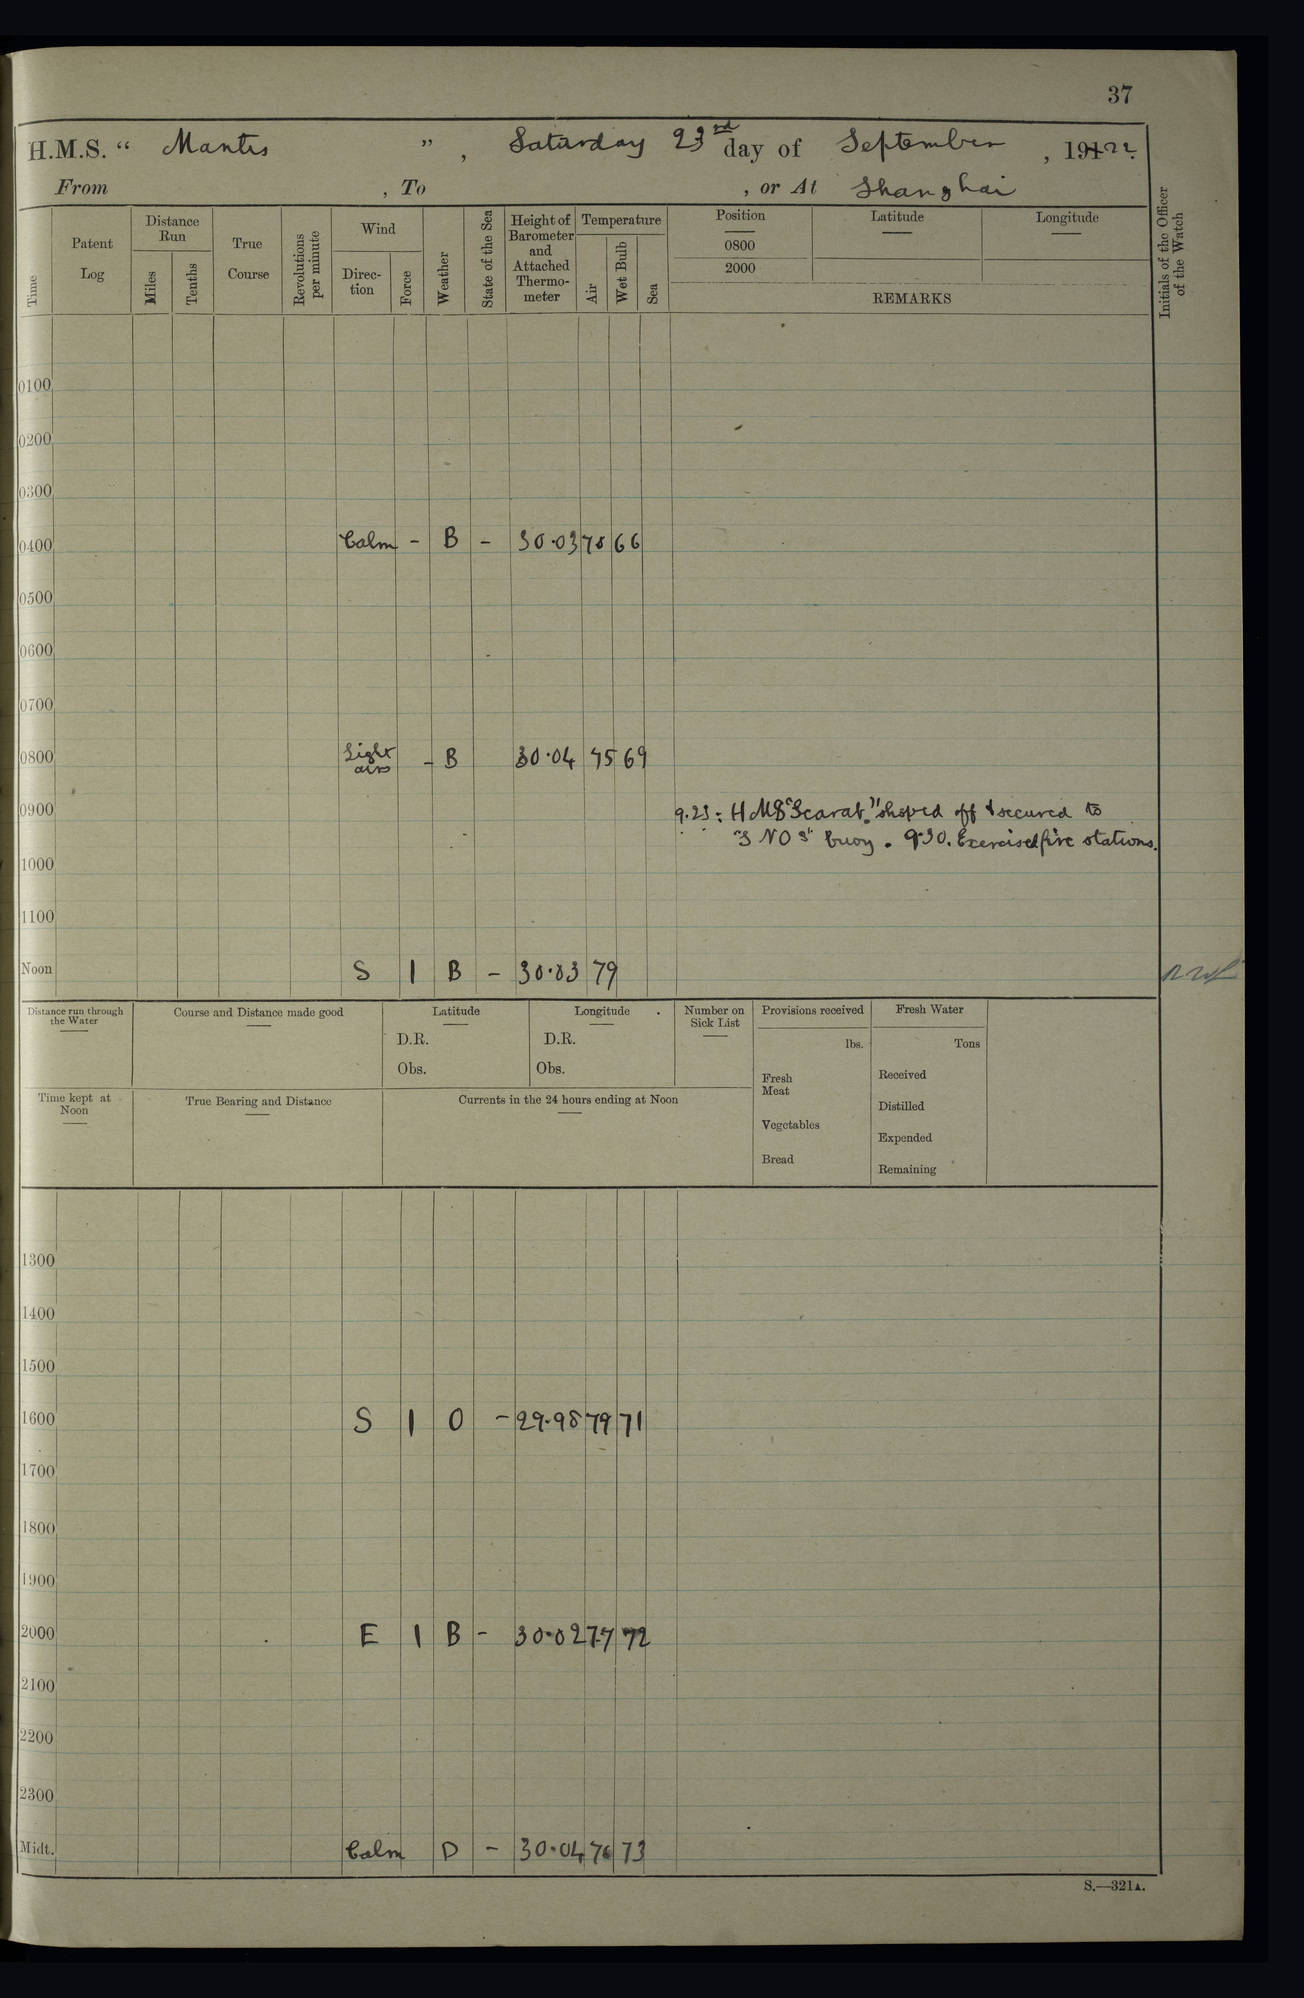 37
H.M.S. “ Mantis ” , Saturday 23rd day of September , 1922.
From , To , or At Shanghai
Time
Patent Log
Distance Run
Miles
Tenths
True Course
Revolutions per minute
Wind
Direc-tion
Force
Weather
State of the Sea
Height of Barometer and Attached Thermo-meter
Temperature
Air
Wet Bulb
Sea
Position
0800
2000
Latitude
Longitude
REMARKS
Initials of the Officer of the Watch
0100
0200
0300
0400 Calm - B - 30.03 70 66
0500
0600
0700
0800 Light airs - B 30.04 75 69
0900 9.25: H M S "Scarab" shoved off & secured to
"S N O's" buoy. 9.30. Exercised fire stations.
1000
1100
Noon S 1 B - 30.03 79
Distance run through the Water
Course and Distance made good
Latitude
D.R.
Obs.
Longitude
D.R.
Obs.
Number on Sick List
Provisions received
lbs.
Fresh Meat
Vegetables
Bread
Fresh Water
Tons
Received
Distilled
Expended
Remaining
Time kept at Noon
True Bearing and Distance
Currents in the 24 hours ending at Noon
1300
1400
1500
1600 S 1 O - 29.98 79 71
1700
1800
1900
2000 E 1 B - 30.02 77 72
2100
2200
2300
Midt. Calm D - 30.04 76 73
S.—321A.